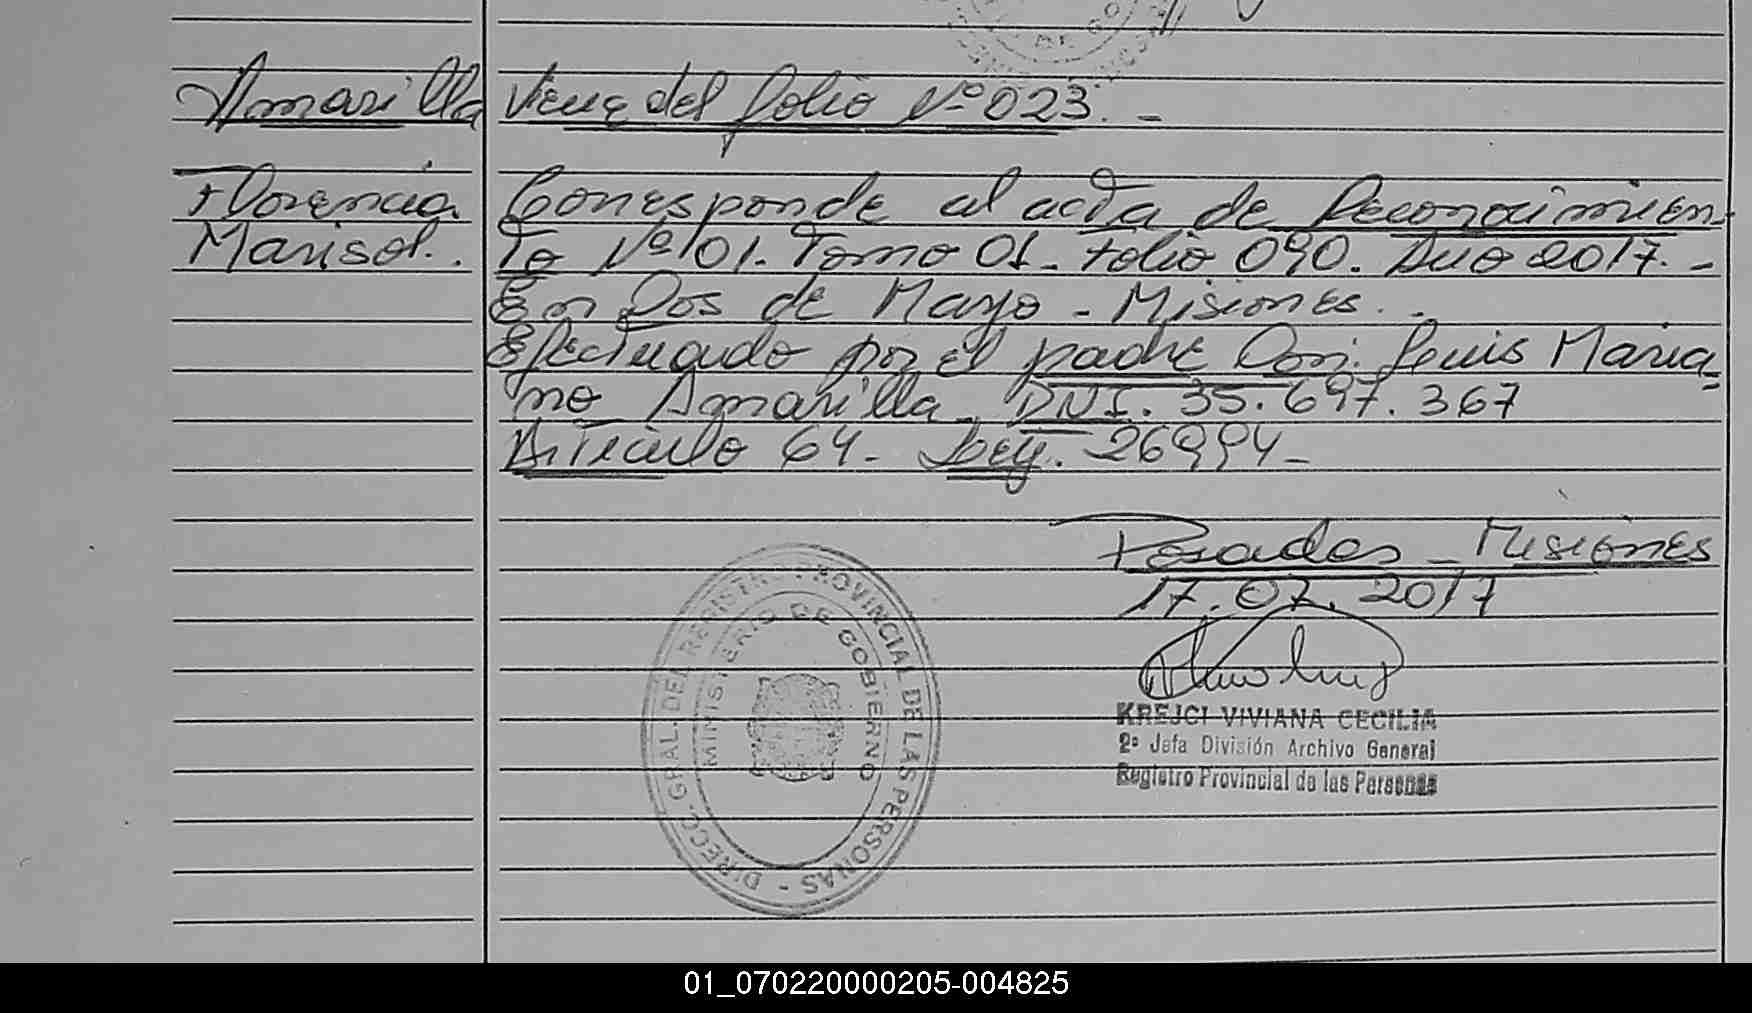 Amarilla Viene del folio Nº 023. -
Florencia Corresponde al acta de Reconocimien-
Marisol. . to Nº 101. Tomo 01 - folio 090. Año 2017. -
En Dos de Mayo - Misiones. -
Efectuado por el padre Don: Luis Maria-
no Amarilla DNI. 35.697.367
Articulo 64 - Ley. 26994 -
Posadas - Misiones
17.07.2017
DIREC. GRAL. DEL REGISTRO PROVINCIAL DE LAS PERSONAS -
MINISTERIO DE GOBIERNO
KREJCI VIVIANA CECILIA
2ª Jefa División Archivo General
Registro Provincial de las Personas
01_070220000205-004825